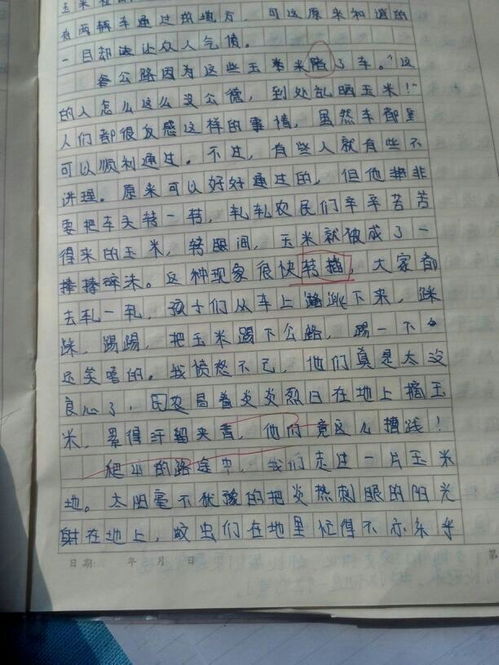 有两辆车通过的地方，可这原来和谐的
一目却让众人气愤。
各公路因为这些玉米来陪了车。“这
的人怎么这么没公德，到处乱晒玉米！”
人们都很反感这样的事情，虽然车都是
可以顺利通过。不过，有些人就有些不
讲理。原来可以好好通过的，但他非
要把车头转一转，轧轧农民们辛辛苦苦
得来的玉米，转眼间，玉米就被成了一
碎末。这种现象很快转播，大家都
去轧一轧，孩子们从车上蹦跳下来，踩
踩，踢踢，把玉米踢下公路，踢一下
还笑嘻的。我愤怒不已，他们真是太没
良心了，农民冒着炎炎烈日在地上摘玉
米，累得汗留夹背，他们竟这么糟践！
爬山的路途中，我们走过一片玉米
地。太阳毫不犹豫的把炎热刺眼的阳光
射在地上，蚊虫们在地里忙得不亦乐乎
日期： 年 月 日 第